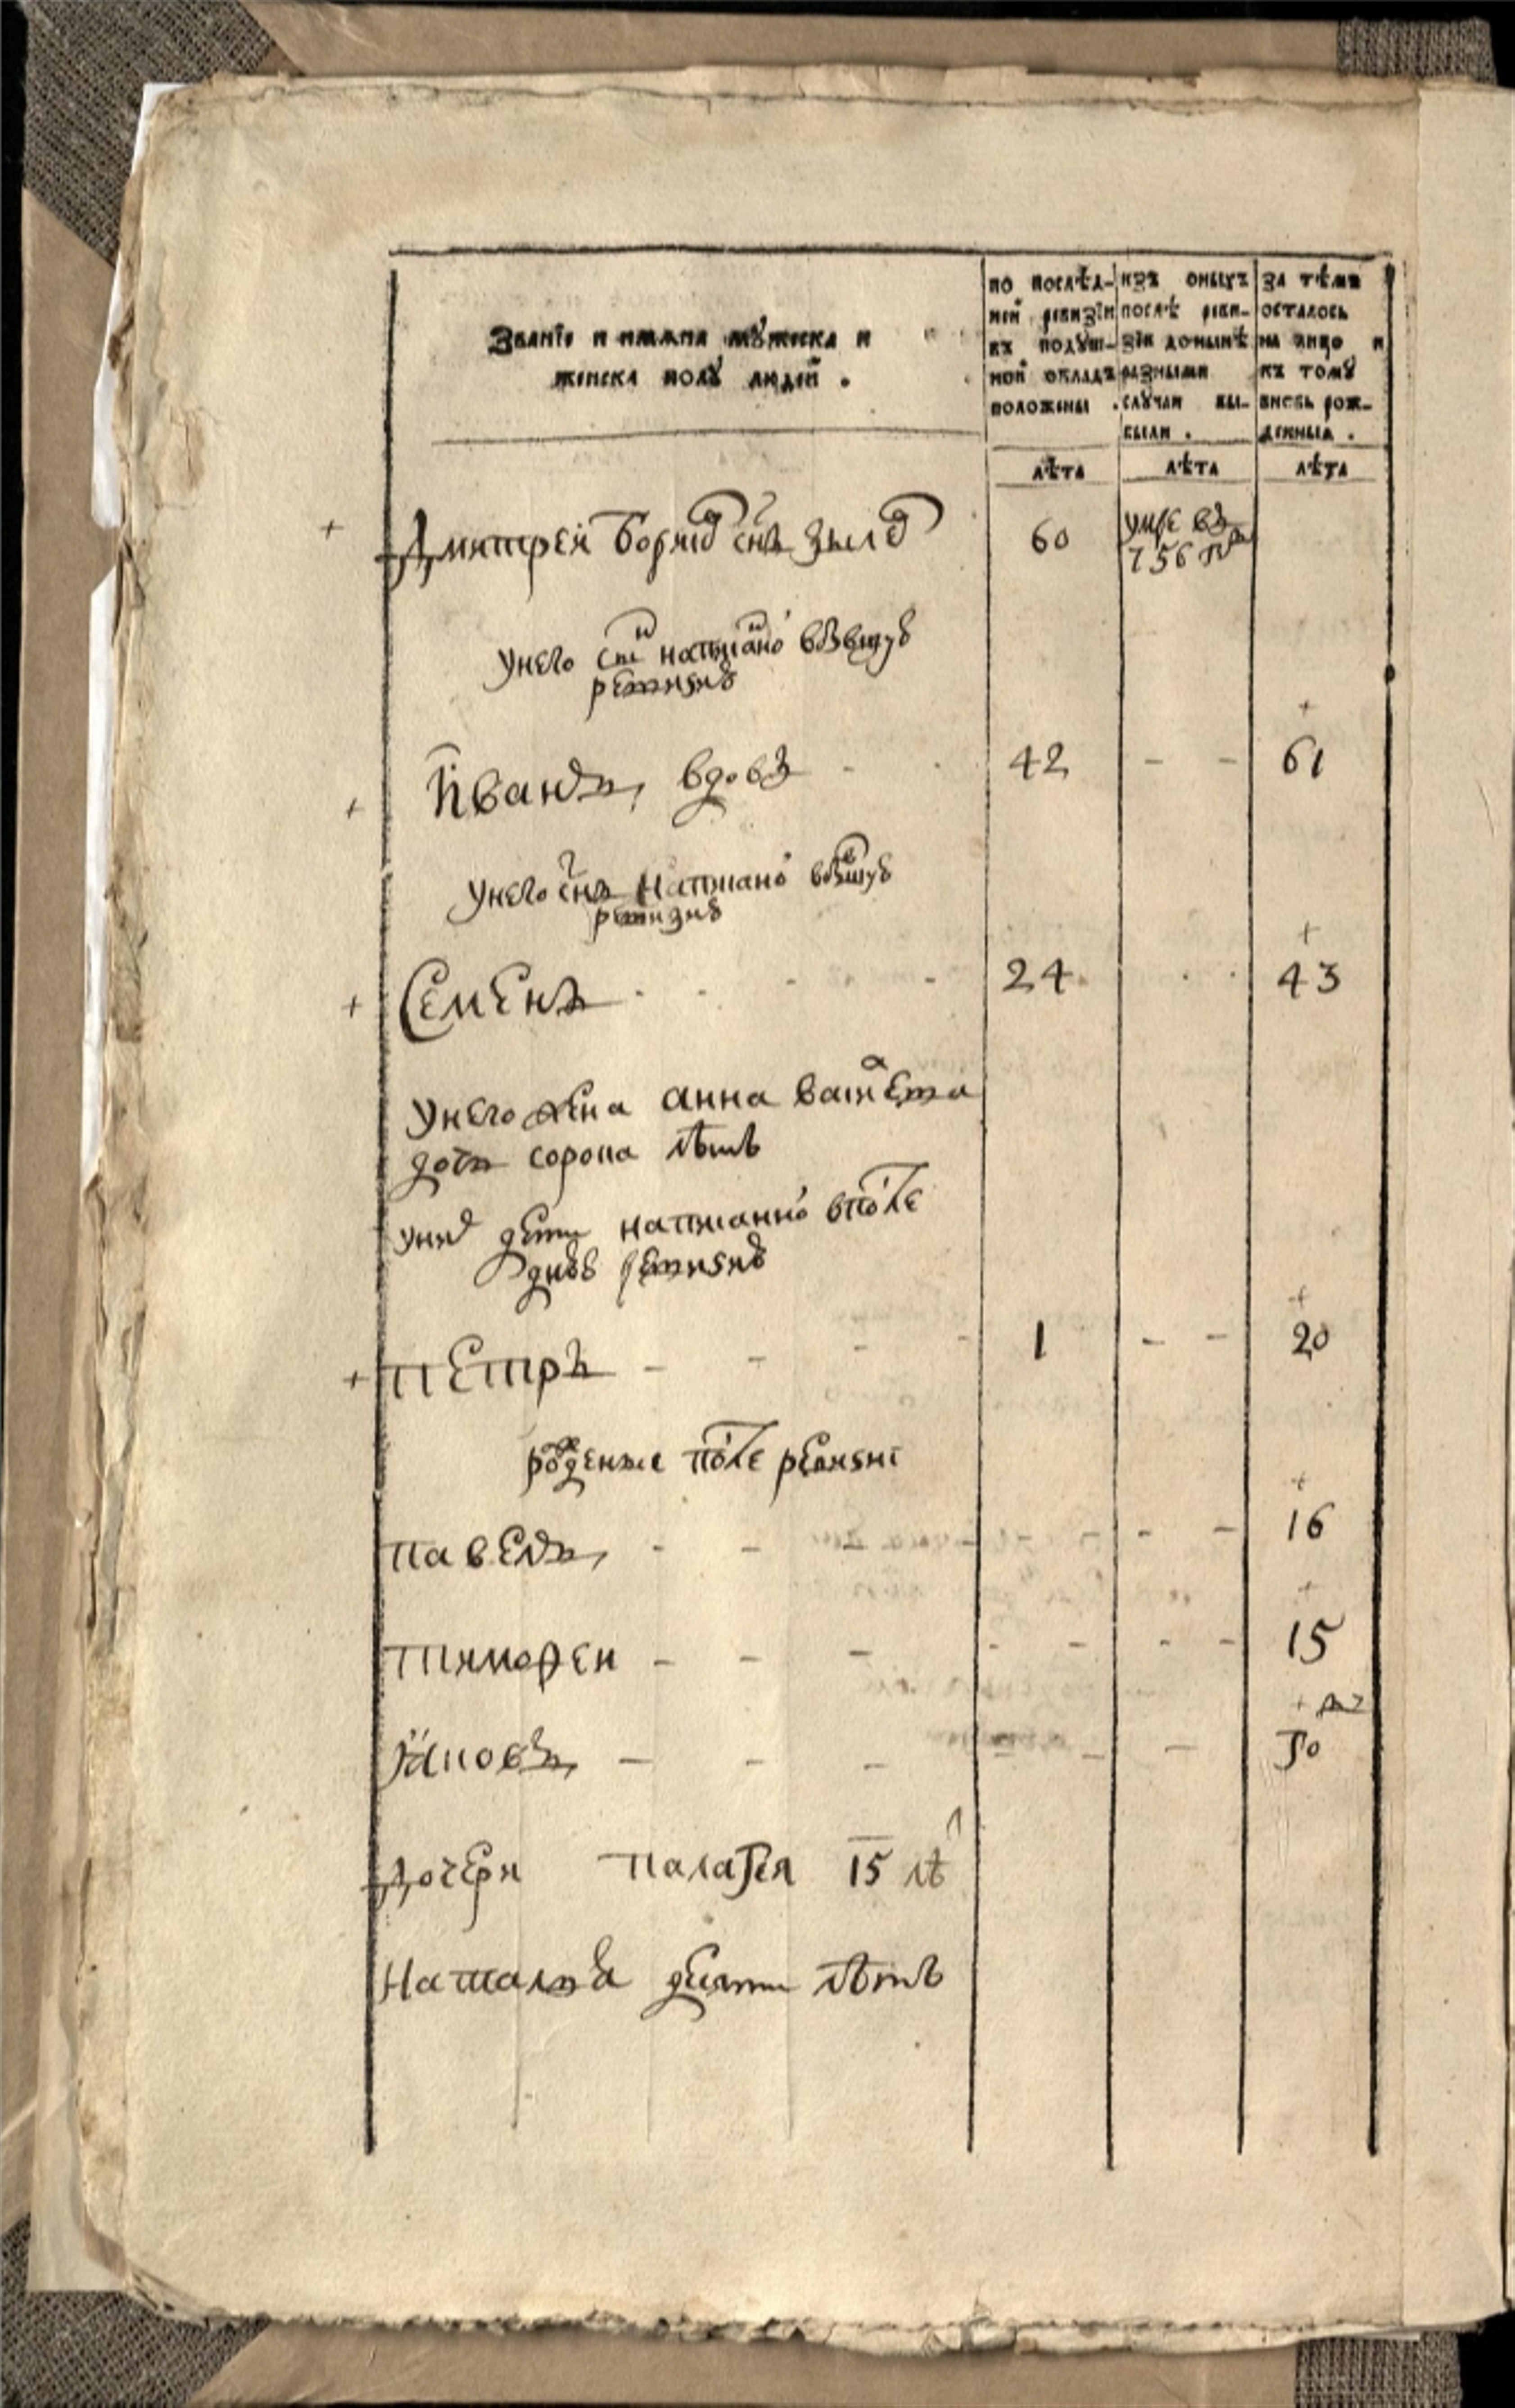 Званїе и имяна мꙋжеска и
женеска полꙋ людей .
по послѣд-
ней ревизїи
въ подꙋш-
ной окладъ
положены .
изъ оныхъ
послѣ реви-
зїи донынѣ
разными
слꙋчаи вы-
были .
за тѣмъ
осталось
на лицо и
къ томꙋ
вновь рож-
денныя .
лѣта
лѣта
лѣта
Дмитрей Борисов снъ
60
умре въ
756 го
У него написано
ревизию
Иванъ, вдовъ
42
61
У него снъ написано
ревизию
Семенъ
24
43
У него жена анна
дочь сорока лѣтъ
у них дети написанно в после
днюю ревизию
петръ
1
20
рожденые после ревизиї
павелъ,
16
тимофеи
15
Яковъ,
дочери палагея 15 лѣ
Наталья девяти лѣтъ